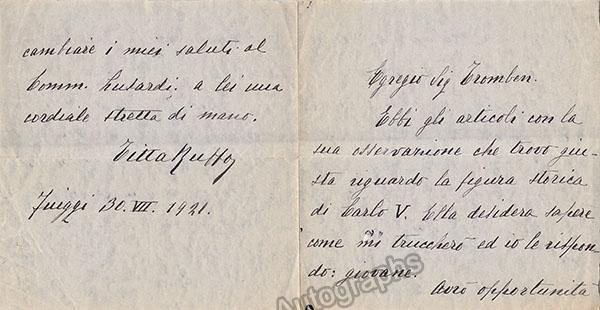 Egregio Sig Tromben.
Ebbi gli articoli con la
sua osservazione che trovo giu-
sta riguardo la figura storica
di Carlo V. Ella desidera sapere
come mi truccherò ed io le rispon-
do: giovane.
Avrò opportunità
cambiare i miei saluti al
Comm. Lusardi. a lei una
cordiale stretta di mano.
Titta Ruffo
Fiuggi 30.VII.1921.
Autographs